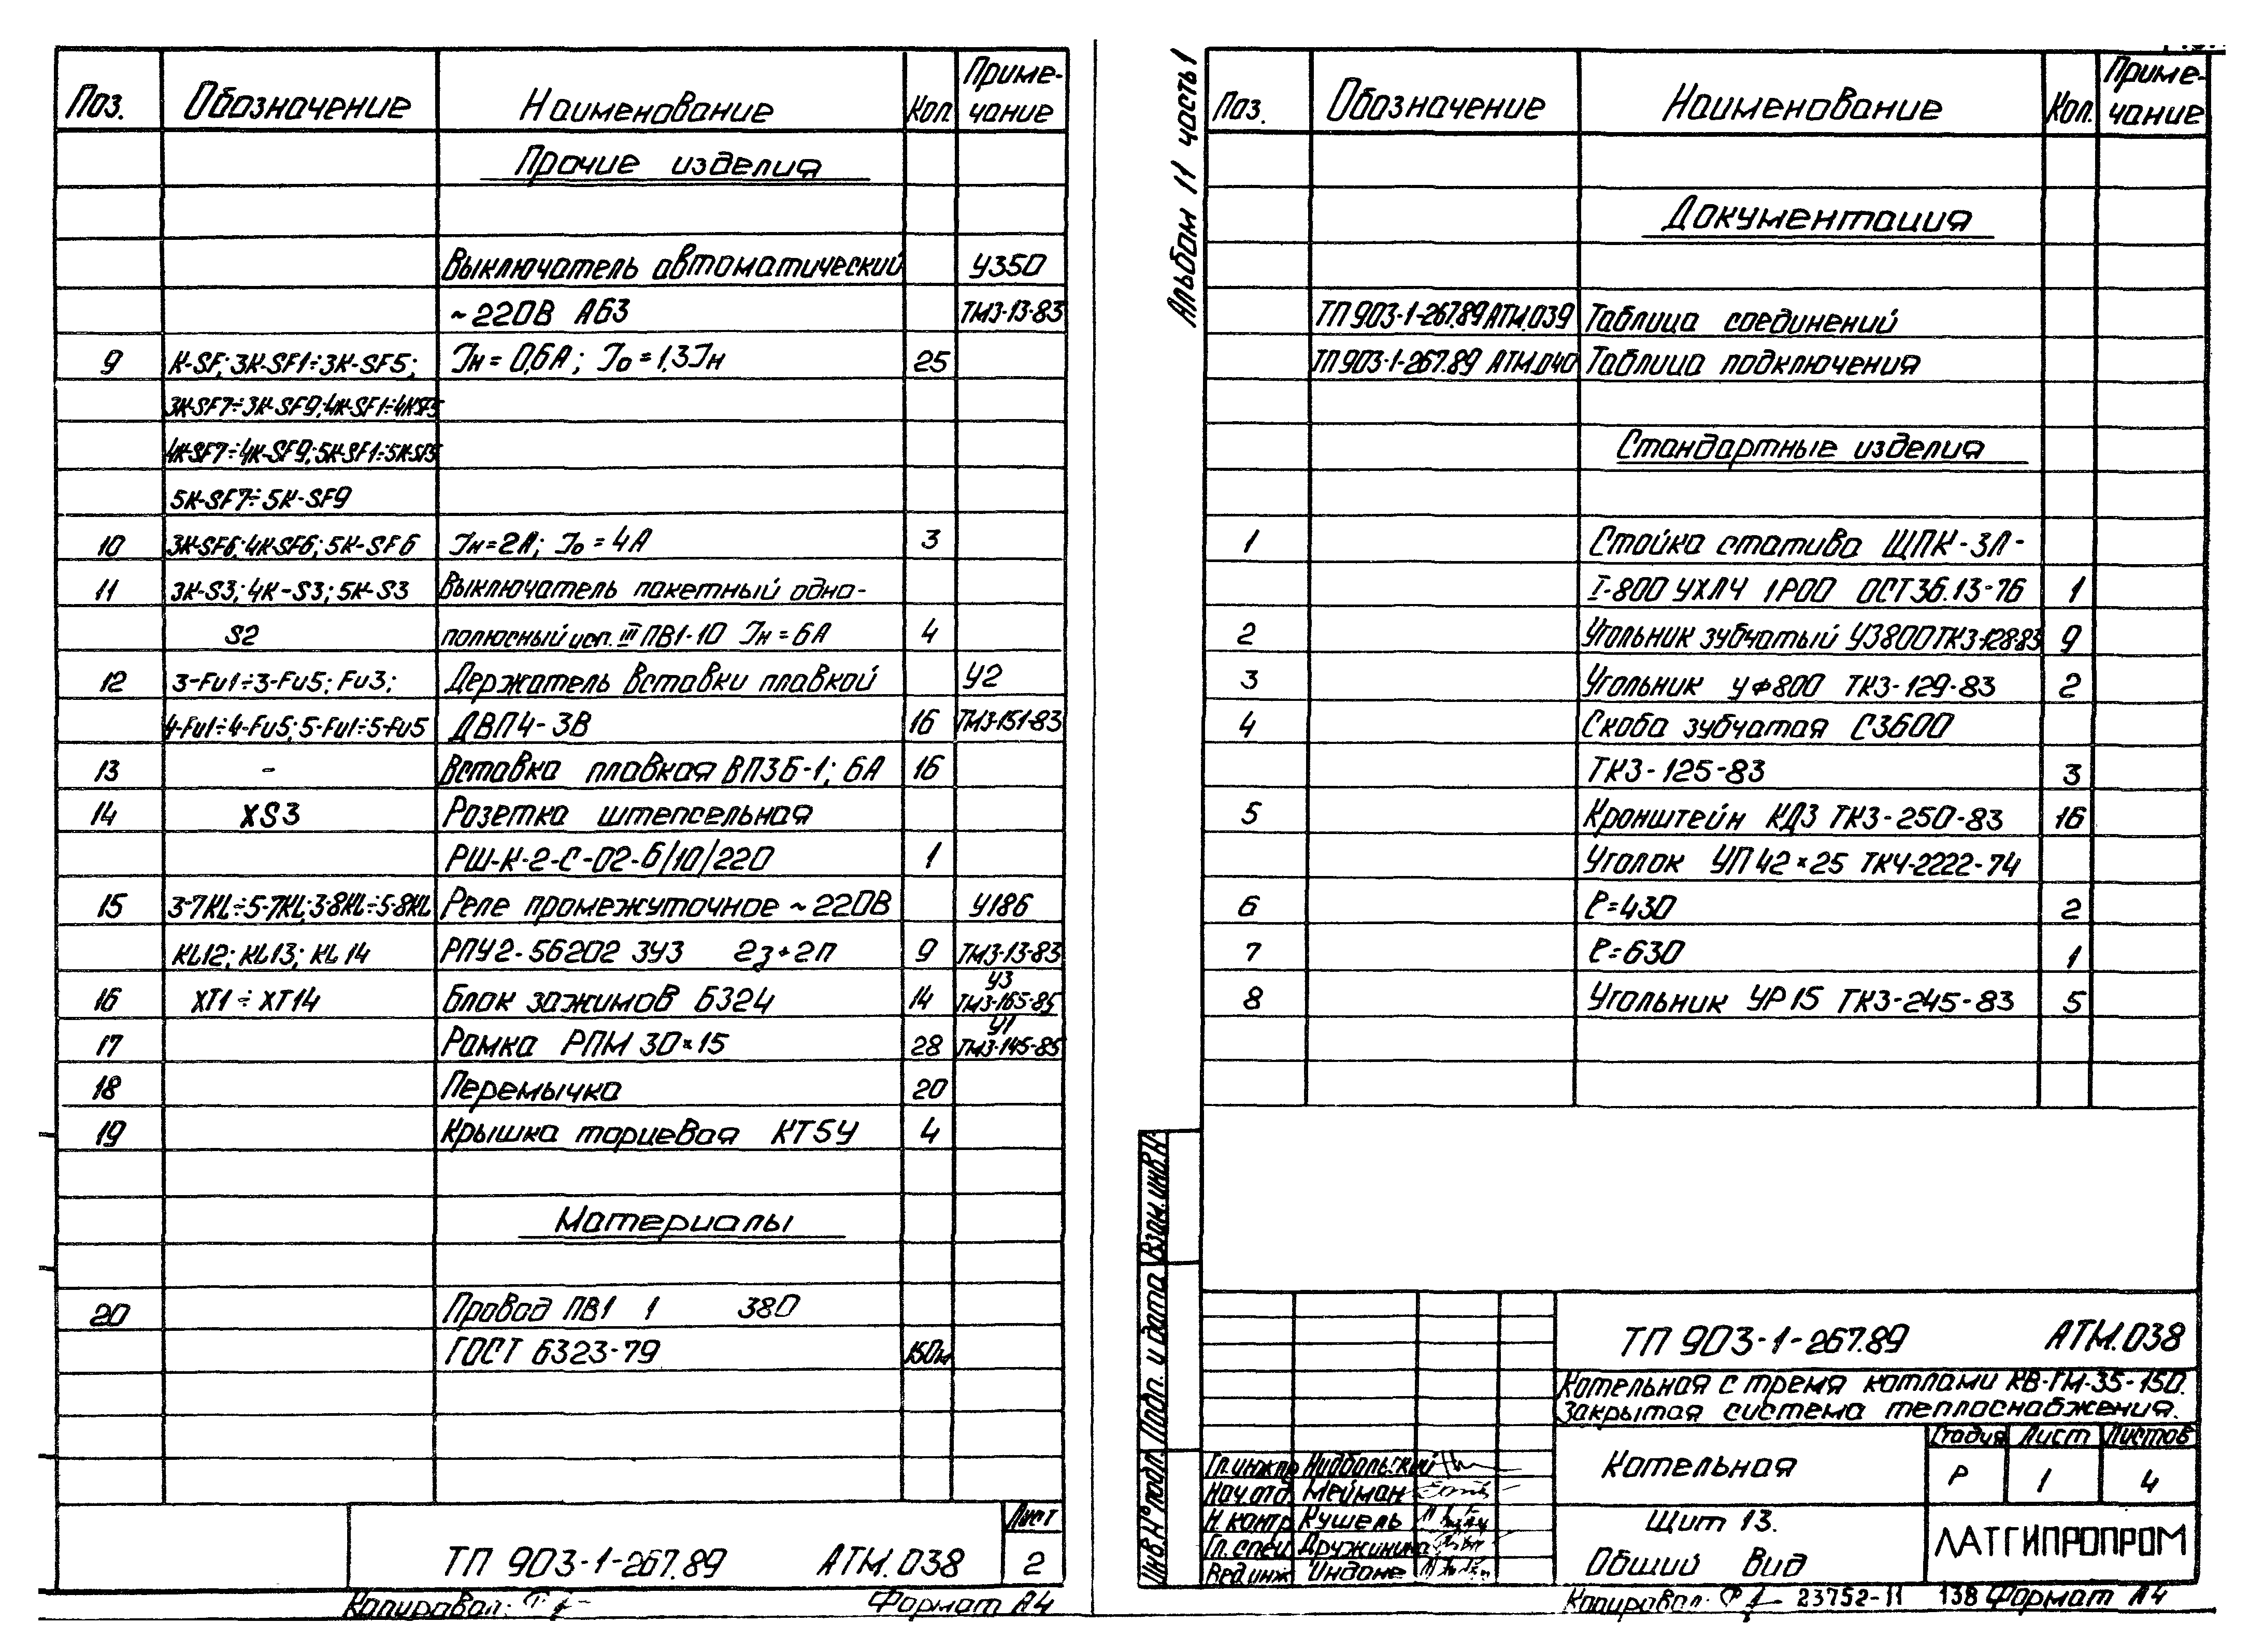 Поз. Обозначение Наименование Кол. Приме-
чание
Прочие изделия
Выключатель автоматический У350
~220В А63 ТМ3-13-83
9 К-SF; 3К-SF1÷3К-SF5; Iн=0,6А; Iо=1,3Iн 25
3К-SF7÷3К-SF9; 4К-SF1÷4К-SF5
4К-SF7÷4К-SF9; 5К-SF1÷5К-SF5
5К-SF7÷5К-SF9
10 3К-SF6; 4К-SF6; 5К-SF6 Iн=2А; Iо=4А 3
11 3К-S3; 4К-S3; 5К-S3 Выключатель пакетный одно-
S2 полюсный исп. III ПВ1-10 Iн=6А 4
12 3-Fu1÷3-Fu5; Fu3; Держатель вставки плавкой У2
4-Fu1÷4-Fu5; 5-Fu1÷5-Fu5 ДВП4-3В 16 ТМ3-151-83
13 - Вставка плавкая ВП3Б-1; 6А 16
14 XS3 Розетка штепсельная
РШ-К-2-С-02-6/10/220 1
15 3-7KL÷5-7KL; 3-8KL÷5-8KL Реле промежуточное ~220В У186
KL12; KL13; KL14 РПУ2-56202 3У3 2з+2п 9 ТМ3-13-83
16 XT1÷XT14 Блок зажимов Б324 14 У3
ТМ3-165-85
17 Рамка РПМ 30×15 28 У1
ТМ3-145-85
18 Перемычка 20
19 Крышка торцевая КТ5У 4
Материалы
20 Провод ПВ1 1 380
ГОСТ 6323-79 150м
Лист
ТП 903-1-267.89 АТМ.038 2
Копировал: Формат А4
Альбом 11 часть 1
Поз. Обозначение Наименование Кол. Приме-
чание
Документация
ТП 903-1-267.89 АТМ.039 Таблица соединений
ТП 903-1-267.89 АТМ.040 Таблица подключения
Стандартные изделия
1 Стойка статива ЩПК-3Л-
I-800 УХЛ4 IР00 ОСТ36.13-76 1
2 Угольник зубчатый УЗ800 ТК3-128-83 9
3 Угольник уф800 ТК3-129-83 2
4 Скоба зубчатая СЗ600
ТК3-125-83 3
5 Кронштейн КД3 ТК3-250-83 16
Уголок УП 42×25 ТК4-2222-74
6 ℓ=430 2
7 ℓ=630 1
8 Угольник УР15 ТК3-245-83 5
Взам. инв.№
Подп. и дата
Инв.№ подл.
ТП 903-1-267.89 АТМ.038
Котельная с тремя котлами КВ-ГМ-35-150.
Закрытая система теплоснабжения.
Гл.инж.пр Нидбальский
Нач.отд. Мейман
Н.контр. Кушель
Гл.спец. Дружинина
Вед.инж. Индане
Котельная
Стадия Лист Листов
Р 1 4
Щит 13.
Общий вид
ЛАТГИПРОПРОМ
Копировал: 23752-11 138 Формат А4